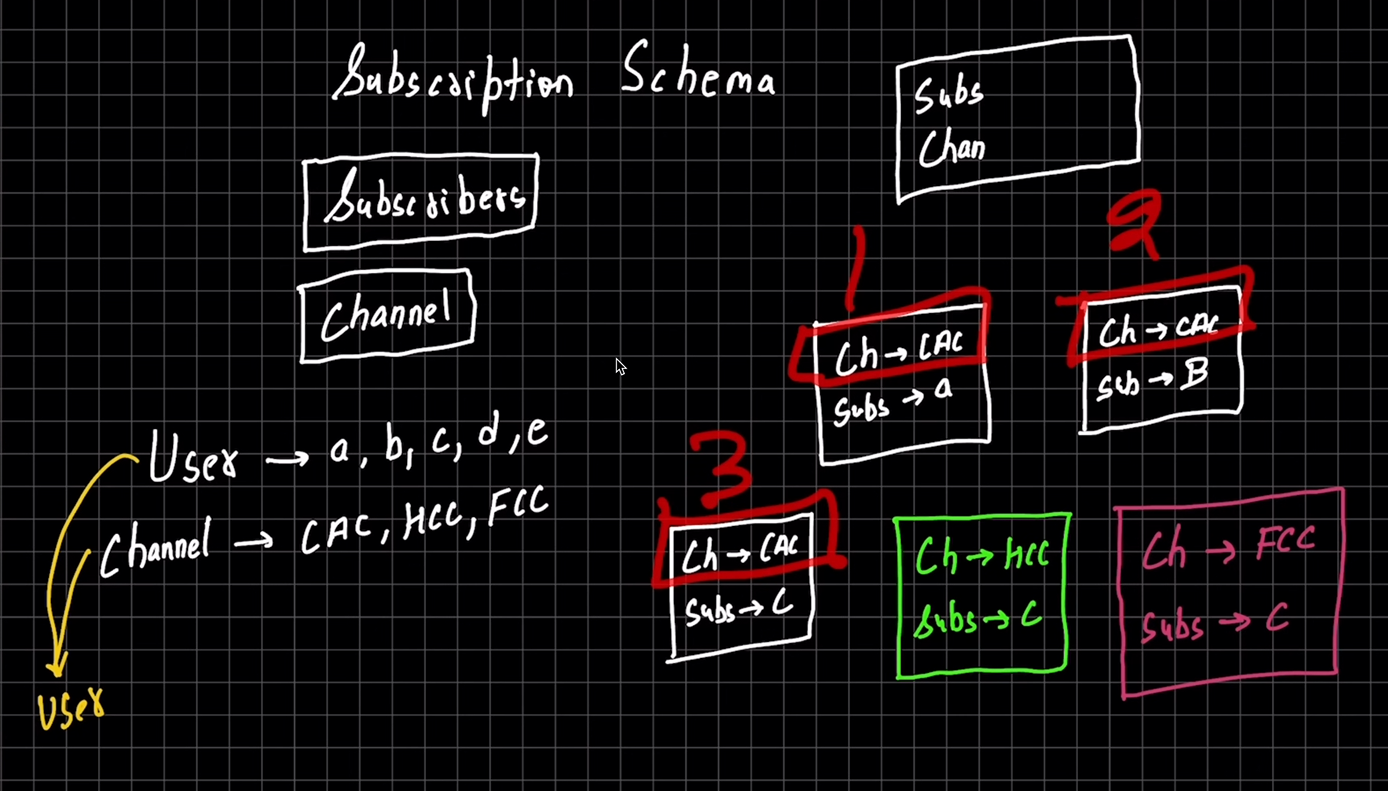 Subscription Schema
Subscribers
Channel
User → a, b, c, d, e
Channel → CAC, HCC, FCC
User
Subs
Chan
1
Ch → CAC
Subs → a
2
Ch → CAC
Sub → B
3
Ch → CAC
Subs → C
Ch → HCC
Subs → C
Ch → FCC
Subs → C